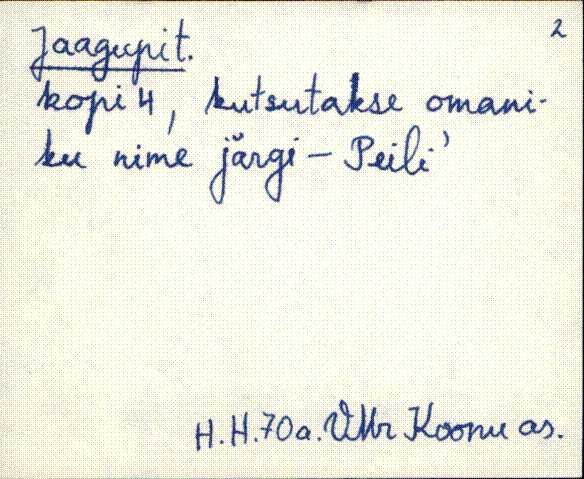 2
Jaagupit.
kopi 4, kutsutakse omani-
ku nime järgi – Peili'
H. H. 70 a. Koonu as.